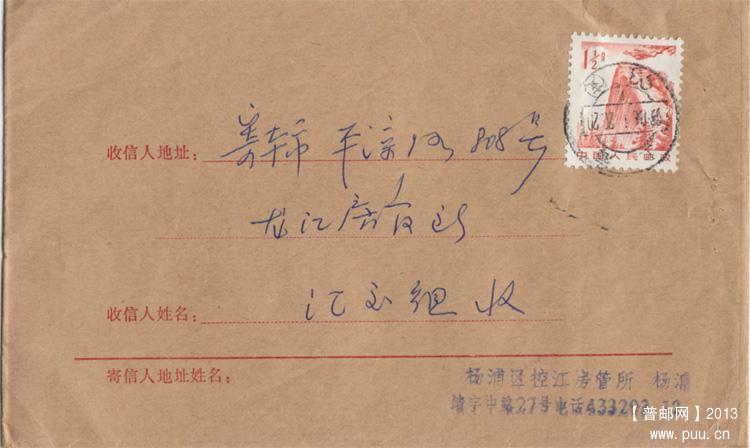 1½分
中国人民邮政
收信人地址：本市 平凉路 808号
龙江房管所
收信人姓名： 汇出组 收
寄信人地址姓名：
杨浦区控江房管所 杨浦
靖宇中路27号电话433203
【普邮网】2013
www.puu.cn